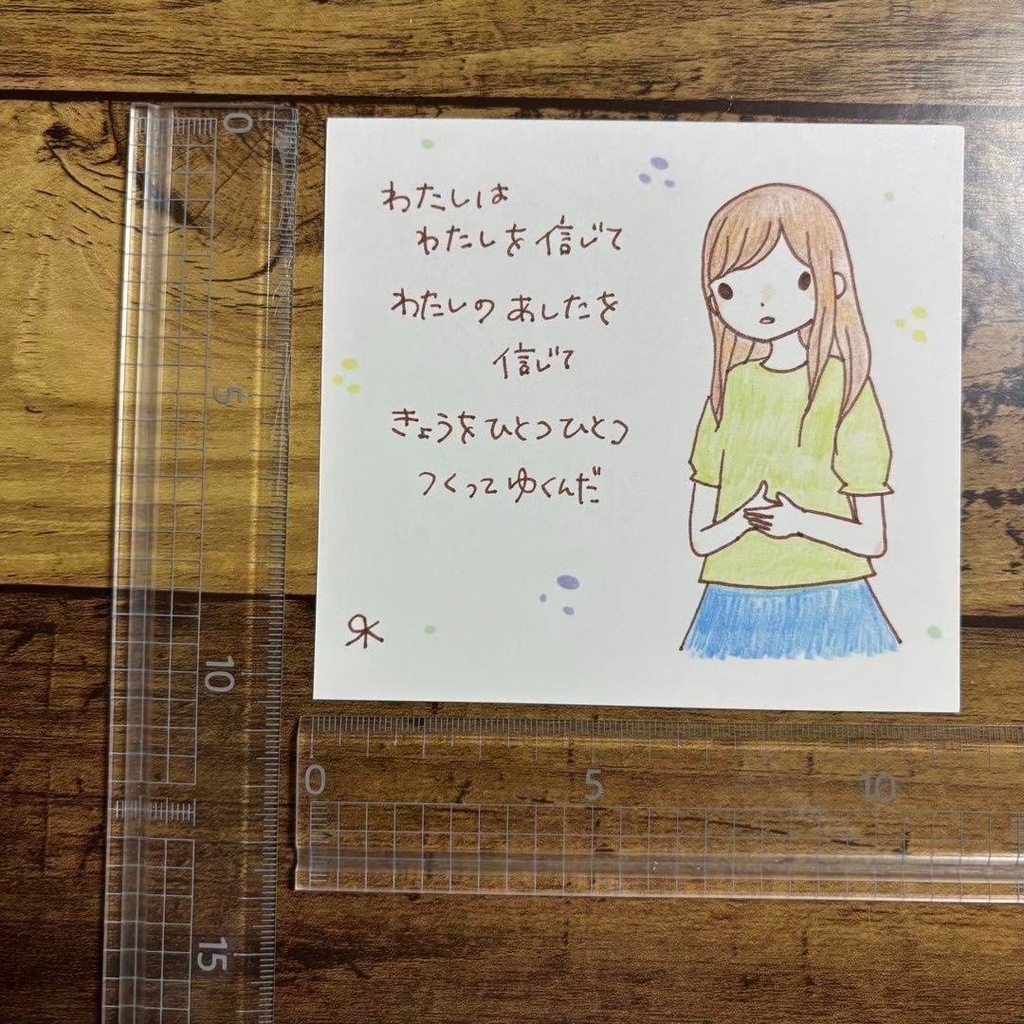 わたしは
わたしを信じて
わたしのあしたを
信じて
きょうをひとつひとつ
つくってゆくんだ
0
5
10
15
0
5
10